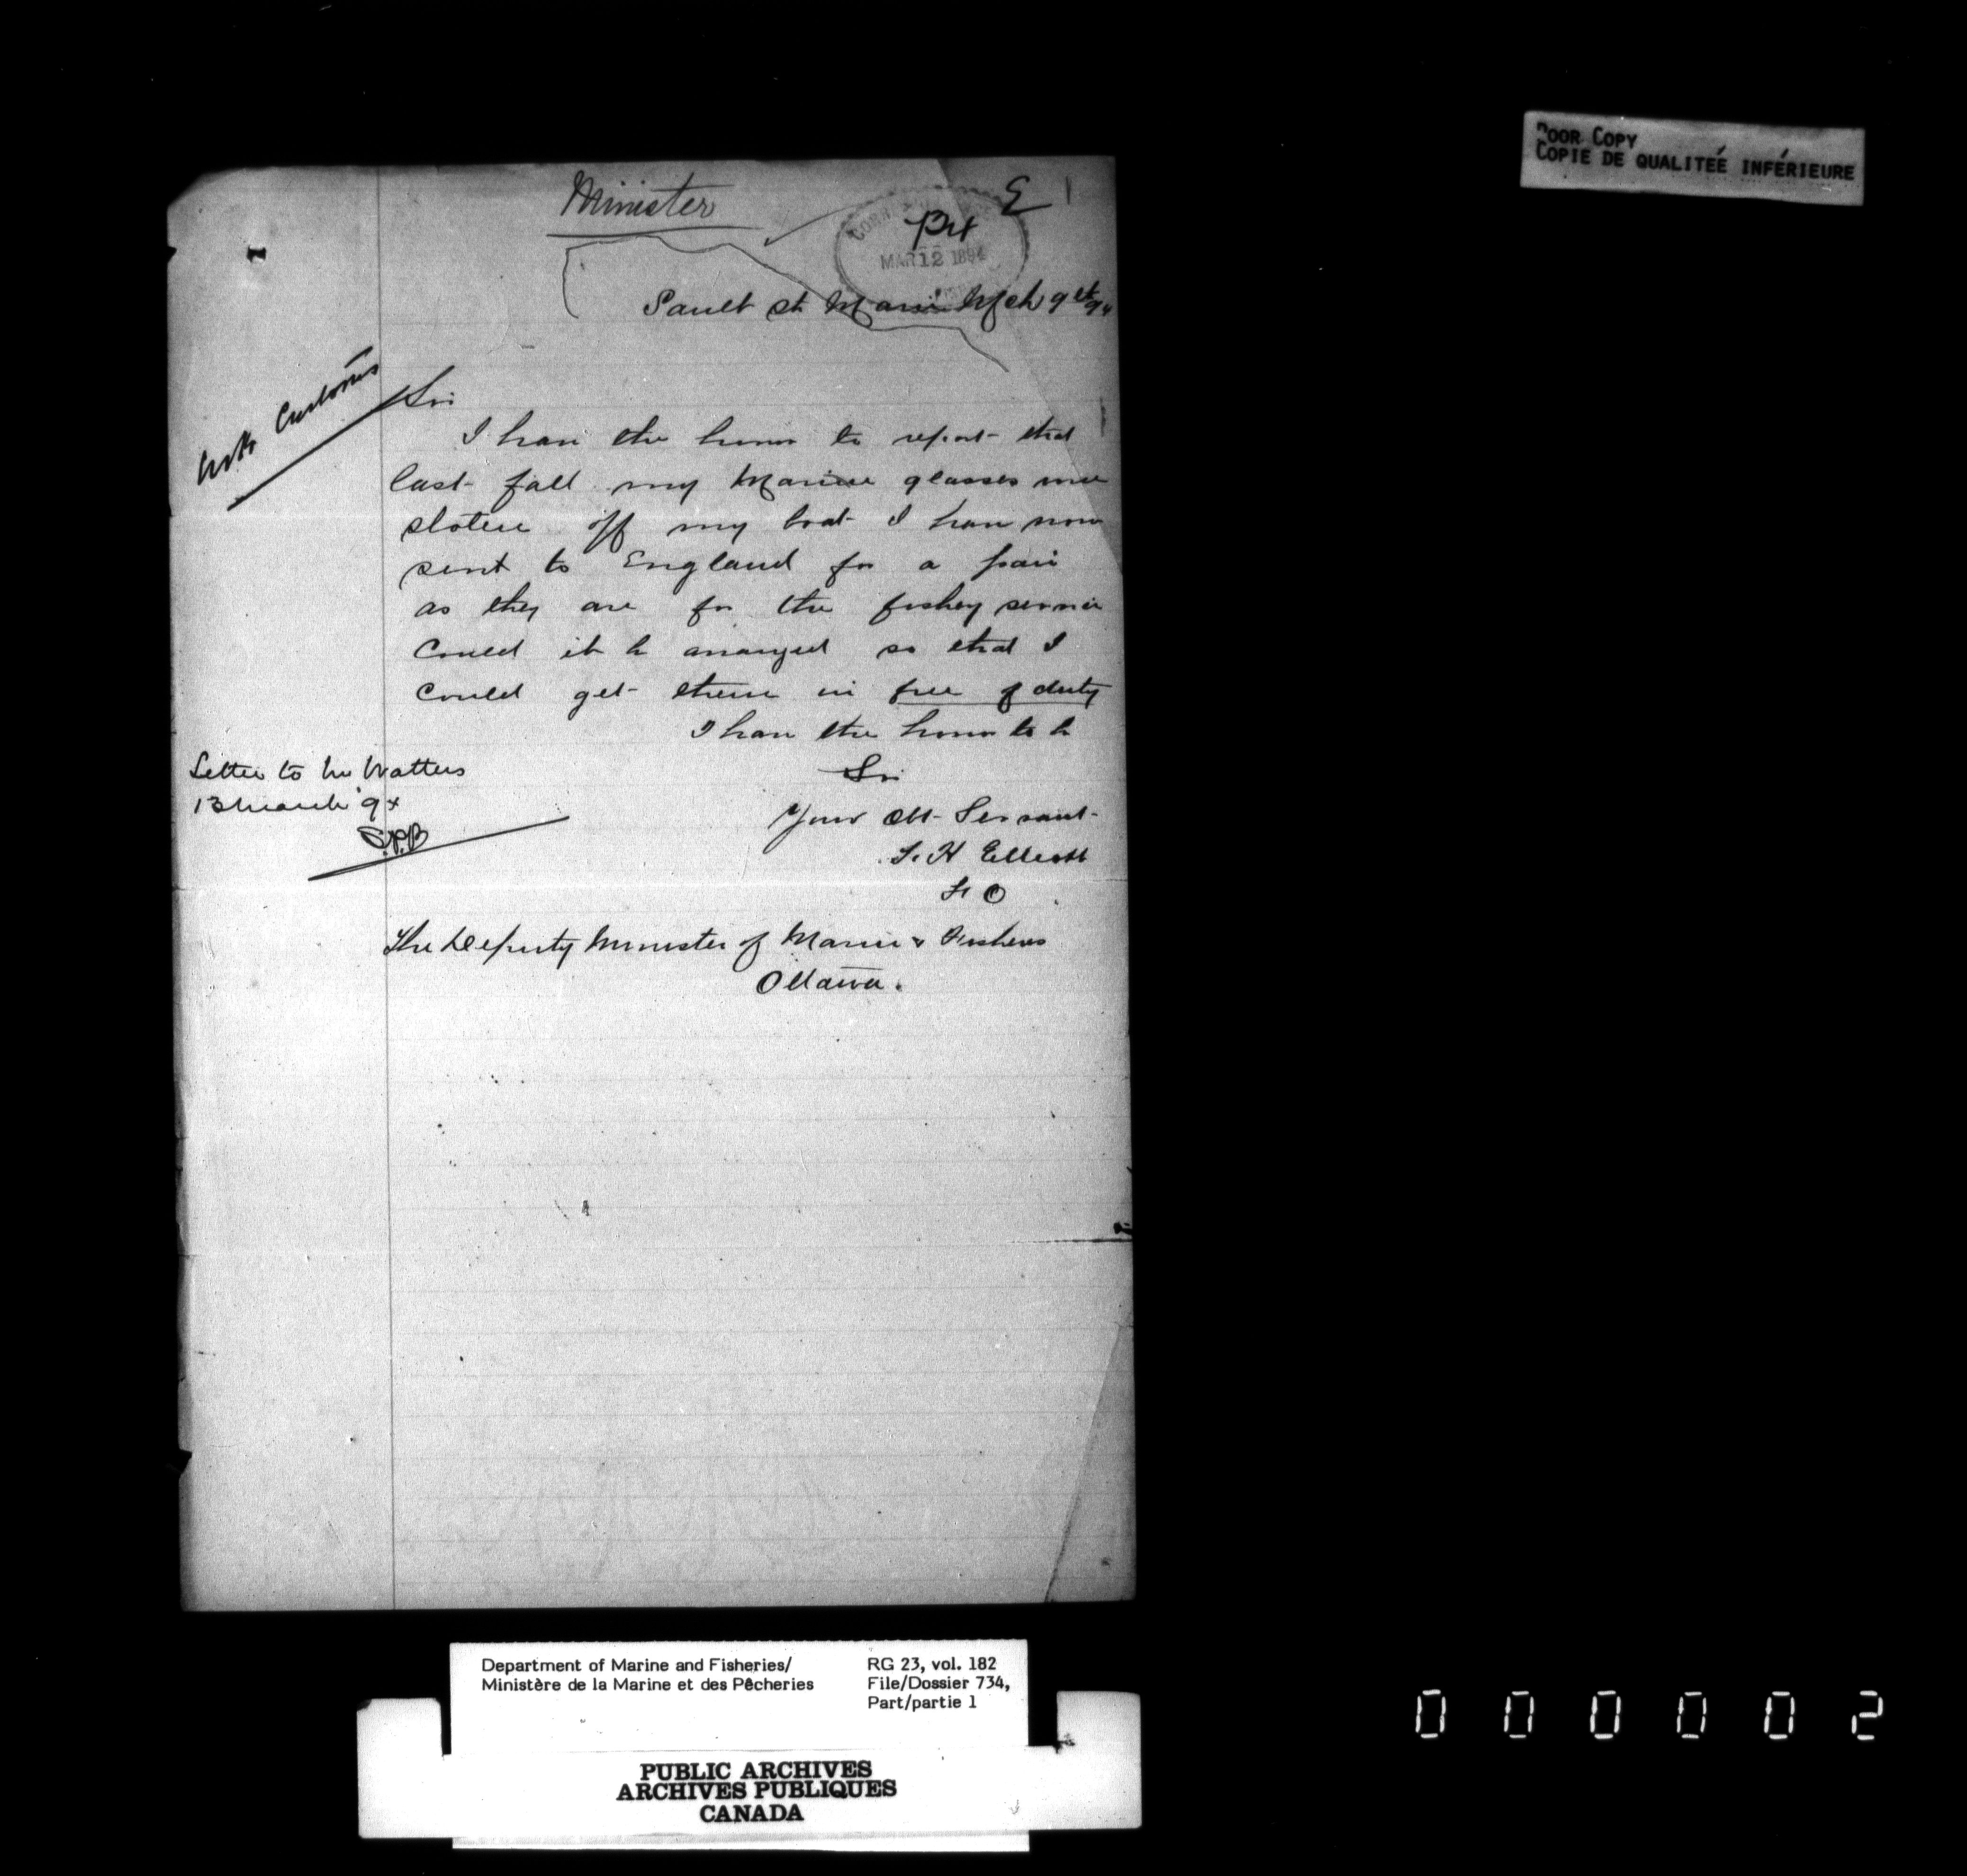 POOR COPY
COPIE DE QUALITEÉ INFÉRIEURE
Minister
E
MAR 12 1894
Sault St Marie Mch 9th 94
Customs
Sir
I have the honor to report that
last fall my Marine glasses were
stolen off my boat I have now
sent to England for a pair
as they are for the fishey service
Could it be arranged so that I
could get them in free of duty
I have the honor to be
Sir
Your Obt Servant
F. H Elliott
F O
Letter to Mr Watters
13 March 94
The Deputy Minister of Marine & Fisheries
Ottawa.
Department of Marine and Fisheries/
Ministère de la Marine et des Pêcheries
RG 23, vol. 182
File/Dossier 734,
Part/partie 1
PUBLIC ARCHIVES
ARCHIVES PUBLIQUES
CANADA
000002